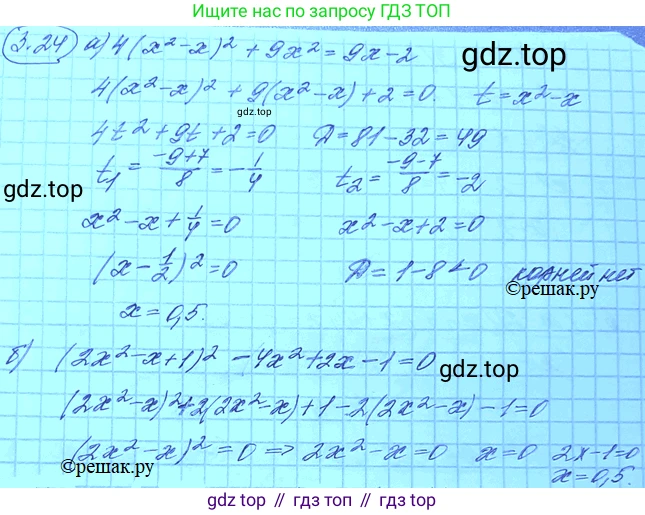 Ищет нас по запросу ГДЗ ТОП
3.24 а) 4(x²-x)² + 9x² = 9x-2
gdz.top
4(x²-x)² + 9(x²-x) + 2 = 0. t = x²-x
gdz.top
4t² + 9t + 2 = 0 Д = 81-32 = 49
t₁ = (-9+7)/8 = -1/4 t₂ = (-9-7)/8 = -2
gdz.top
x²-x+1/4 = 0 x²-x+2 = 0
gdz.top
(x-1/2)² = 0 Д = 1-8<0 корней нет
©решак.ру
x = 0,5.
б) (2x²-x+1)² - 4x²+2x-1=0
gdz.top
(2x²-x)²+2(2x²-x)+1-2(2x²-x)-1=0
(2x²-x)² = 0 => 2x²-x=0 x=0 2x-1=0
©решак.ру
x=0,5.
gdz top // гдз топ // gdz.top